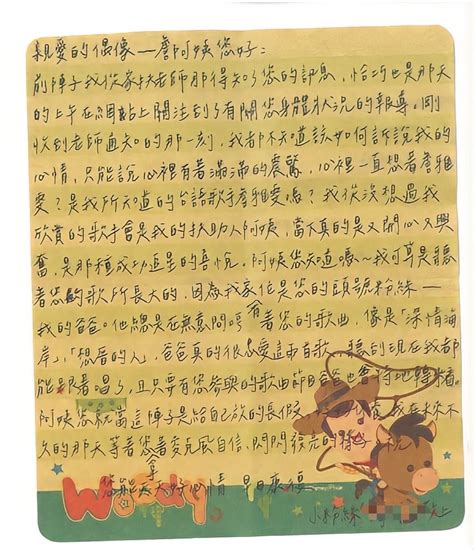 親愛的偶像—詹阿姨您好:
前陣子我從家扶老師那得知了您的訊息,恰巧也是那天
的上午在網站上關注到了有關您身體狀況的報導。剛
收到老師通知的那一刻,我都不知道該如何訴說我的
心情,只能說心裡有著滿滿的震驚,心裡一直想著詹雅
雯?是我所知道的台語歌手詹雅雯嗎?我從沒想過我
欣賞的歌手會是我的扶助人阿姨,當下真的是又開心又興
奮,是那種成功追星的喜悅。阿姨您知道嗎~我可算是聽
著您的歌所長大的,因為我家住是您的頭號粉絲—
我的爸爸。他總是在無意間哼著您的歌曲,像是「深情海
岸」「想厝的人」,爸爸真的很愛這兩首歌,聽到現在我都
能跟著唱了,且只要有您參與的歌曲節目爸爸也會
阿姨您就當這陣子是給自己放的長假,我在未來不
久的那天等著您拿著麥克風自信、閃閃發亮的樣子,祝
您能天天好心情 早日康復
Woody
小粉絲 上